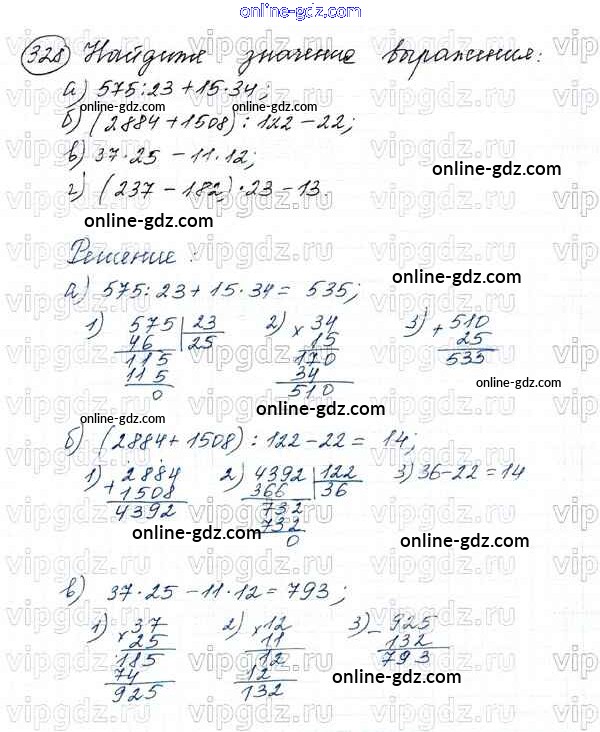 online-gdz.com
328 Найдите значение выражения:
а) 575:23+15·34;
online-gdz.com
б) (2884+1508):122-22;
в) 37·25-11·12;
online-gdz.com
г) (237-182)·23-13.
online-gdz.com
vipgdz.ru
Решение:
online-gdz.com
а) 575:23+15·34= 535;
1) 575 | 23 2) × 34 3) + 510
46 25 15 25
115 170 535
115 34
0 510
online-gdz.com
online-gdz.com
online-gdz.com
б) (2884+1508):122-22= 14;
1) 2884 2) 4392 | 122 3) 36-22=14
+ 1508 366 36
4392 732
732
0
online-gdz.com
online-gdz.com
в) 37·25-11·12=793;
1) × 37 2) × 12 3) - 925
25 11 132
185 12 793
74 12
925 132
vipgdz.ru